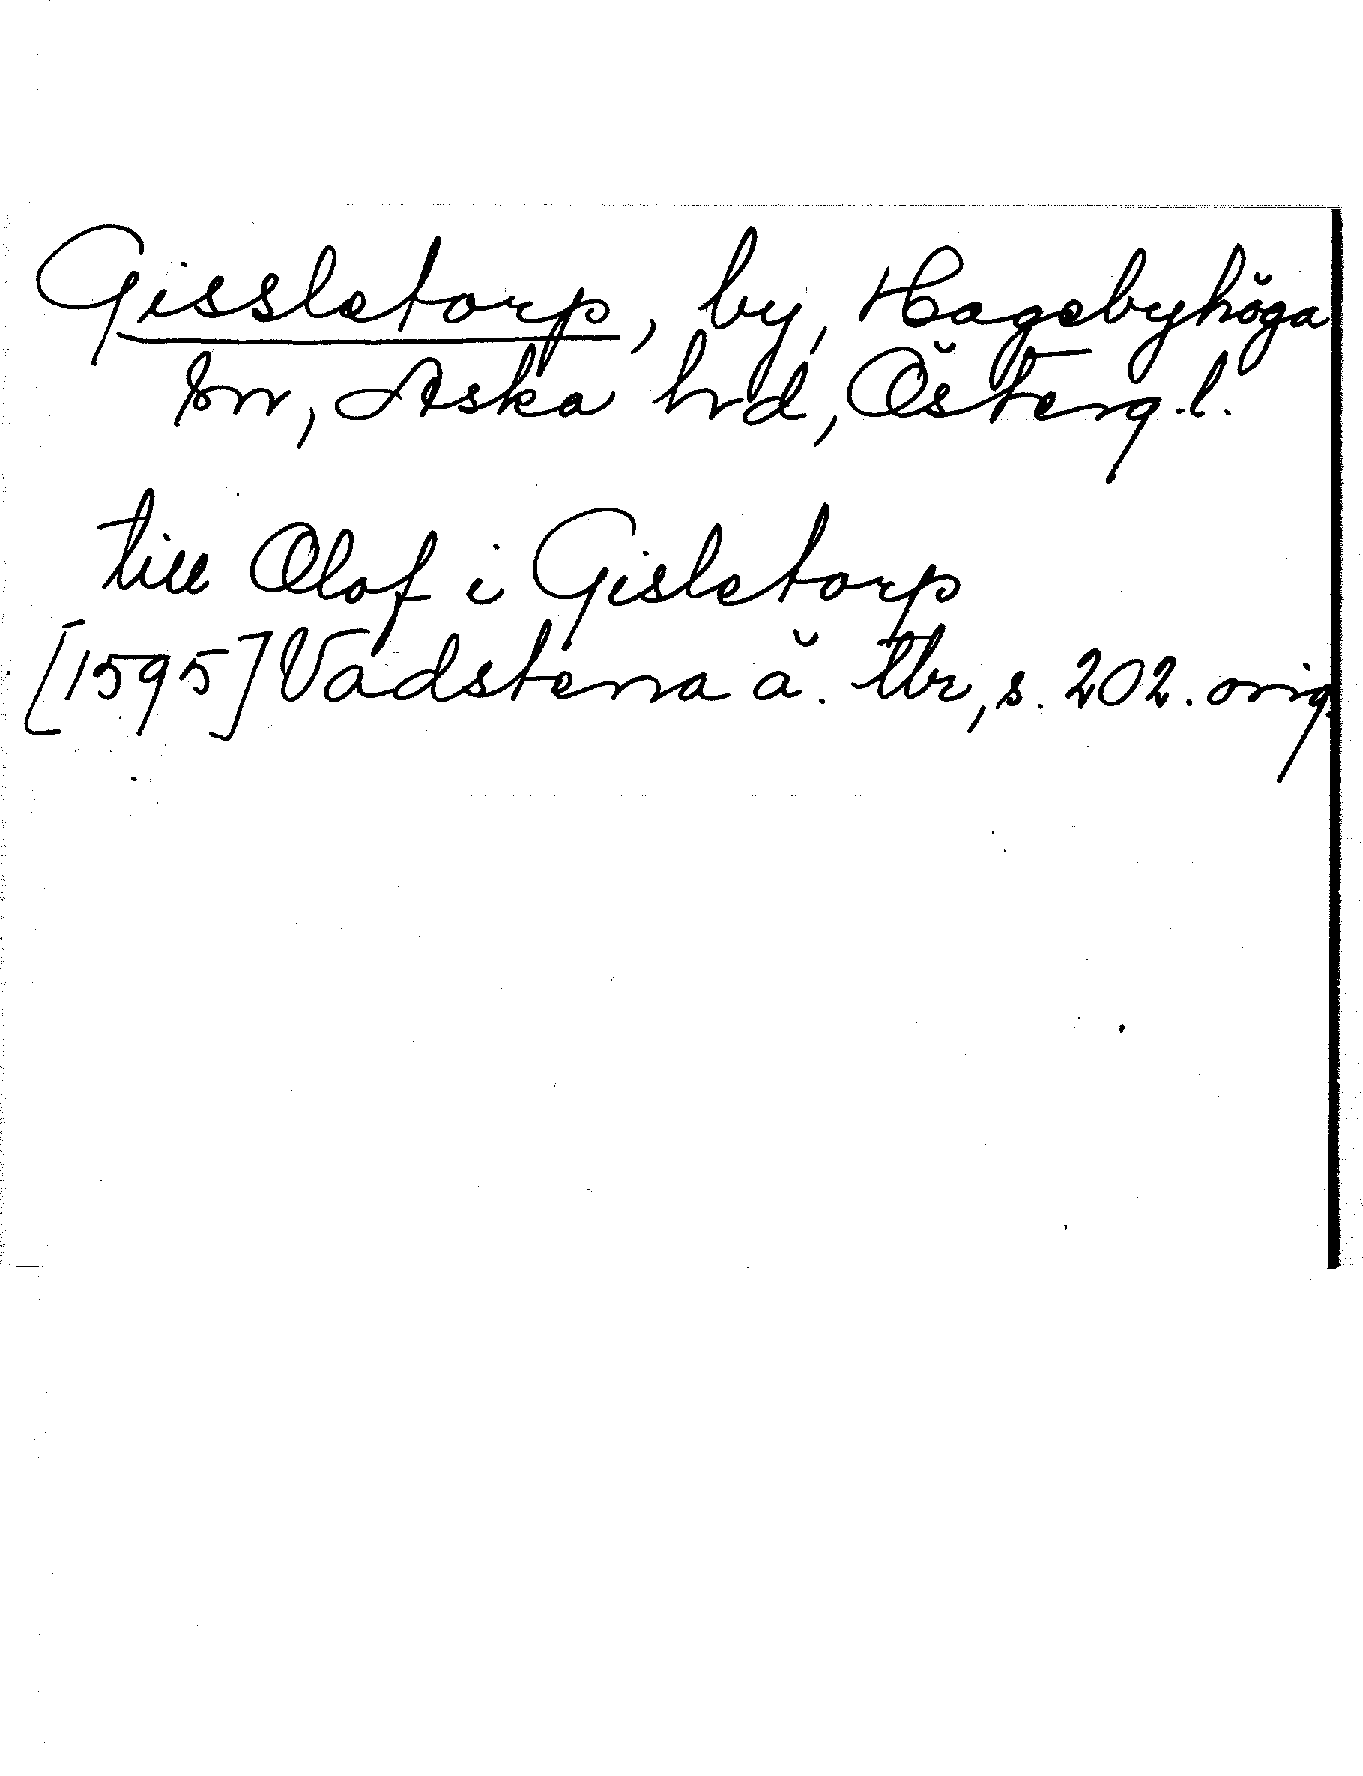 Gissletorp, by, Hagebyhöga
sn, Aska hd, Österg.l.
till Olof i Gisletorp
[1595] Vadstena ä. tbr, s. 202. orig.